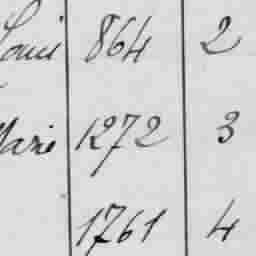 Louis 864 2
Marie 1272 3
1761 4